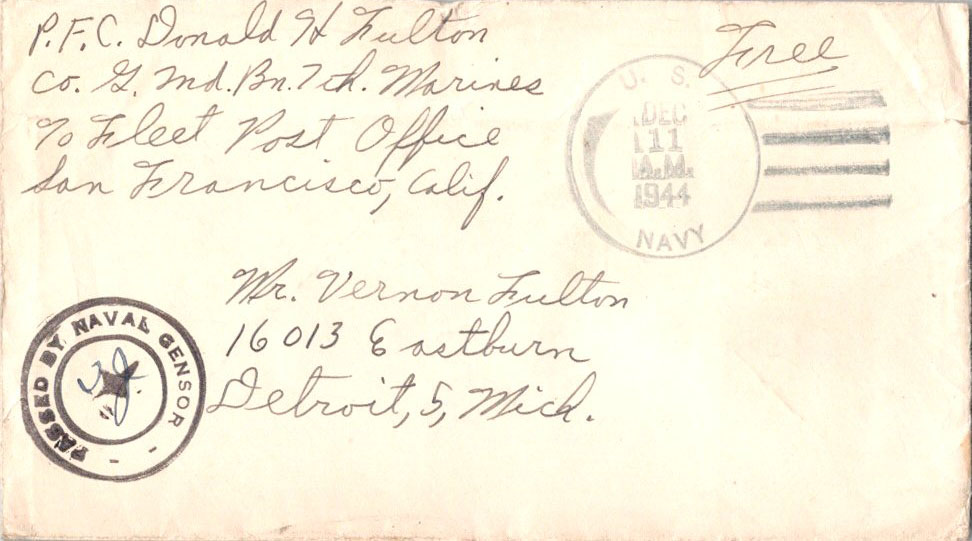 P.F.C. Donald H Fulton
Co. G. 2nd. Bn. 7th. Marines
℅ Fleet Post Office
San Francisco, Calif.
Free
U. S.
DEC
11
A.M.
1944
NAVY
Mr. Vernon Fulton
16013 Eastburn
Detroit, 5, Mich.
PASSED BY NAVAL CENSOR